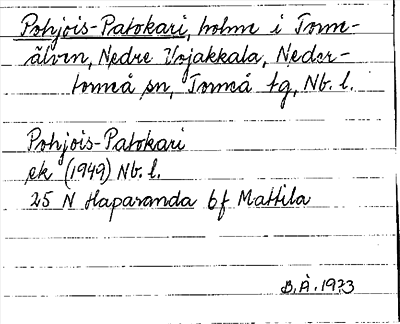 Pohjois-Patokari, holme i Torne-
älven, Nedre Vojakkala, Neder-
torneå sn, Torneå tg, Nb. l.
Pohjois-Patokari
ek (1949) Nb. l.
25 N Haparanda bf Mattila
B.Å. 1973